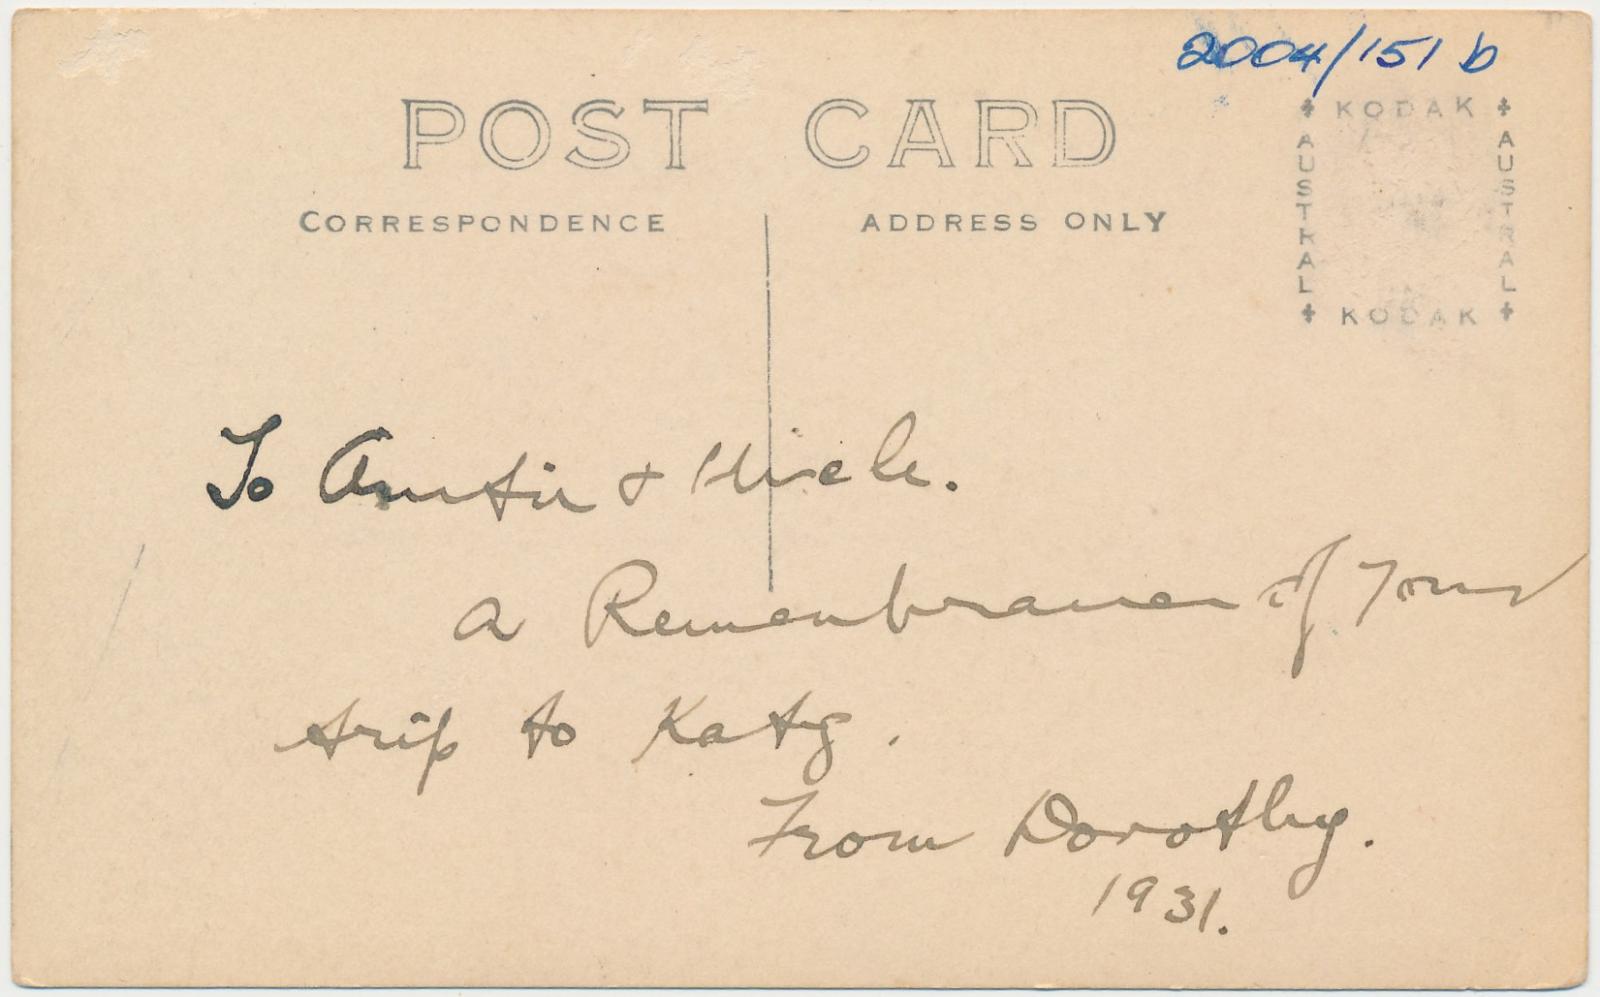 2004/151 b
POST CARD
CORRESPONDENCE
ADDRESS ONLY
KODAK
AUSTRAL
AUSTRAL
KODAK
To Auntie & Uncle.
a Remembrance of your
trip to Katy.
From Dorothy.
1931.